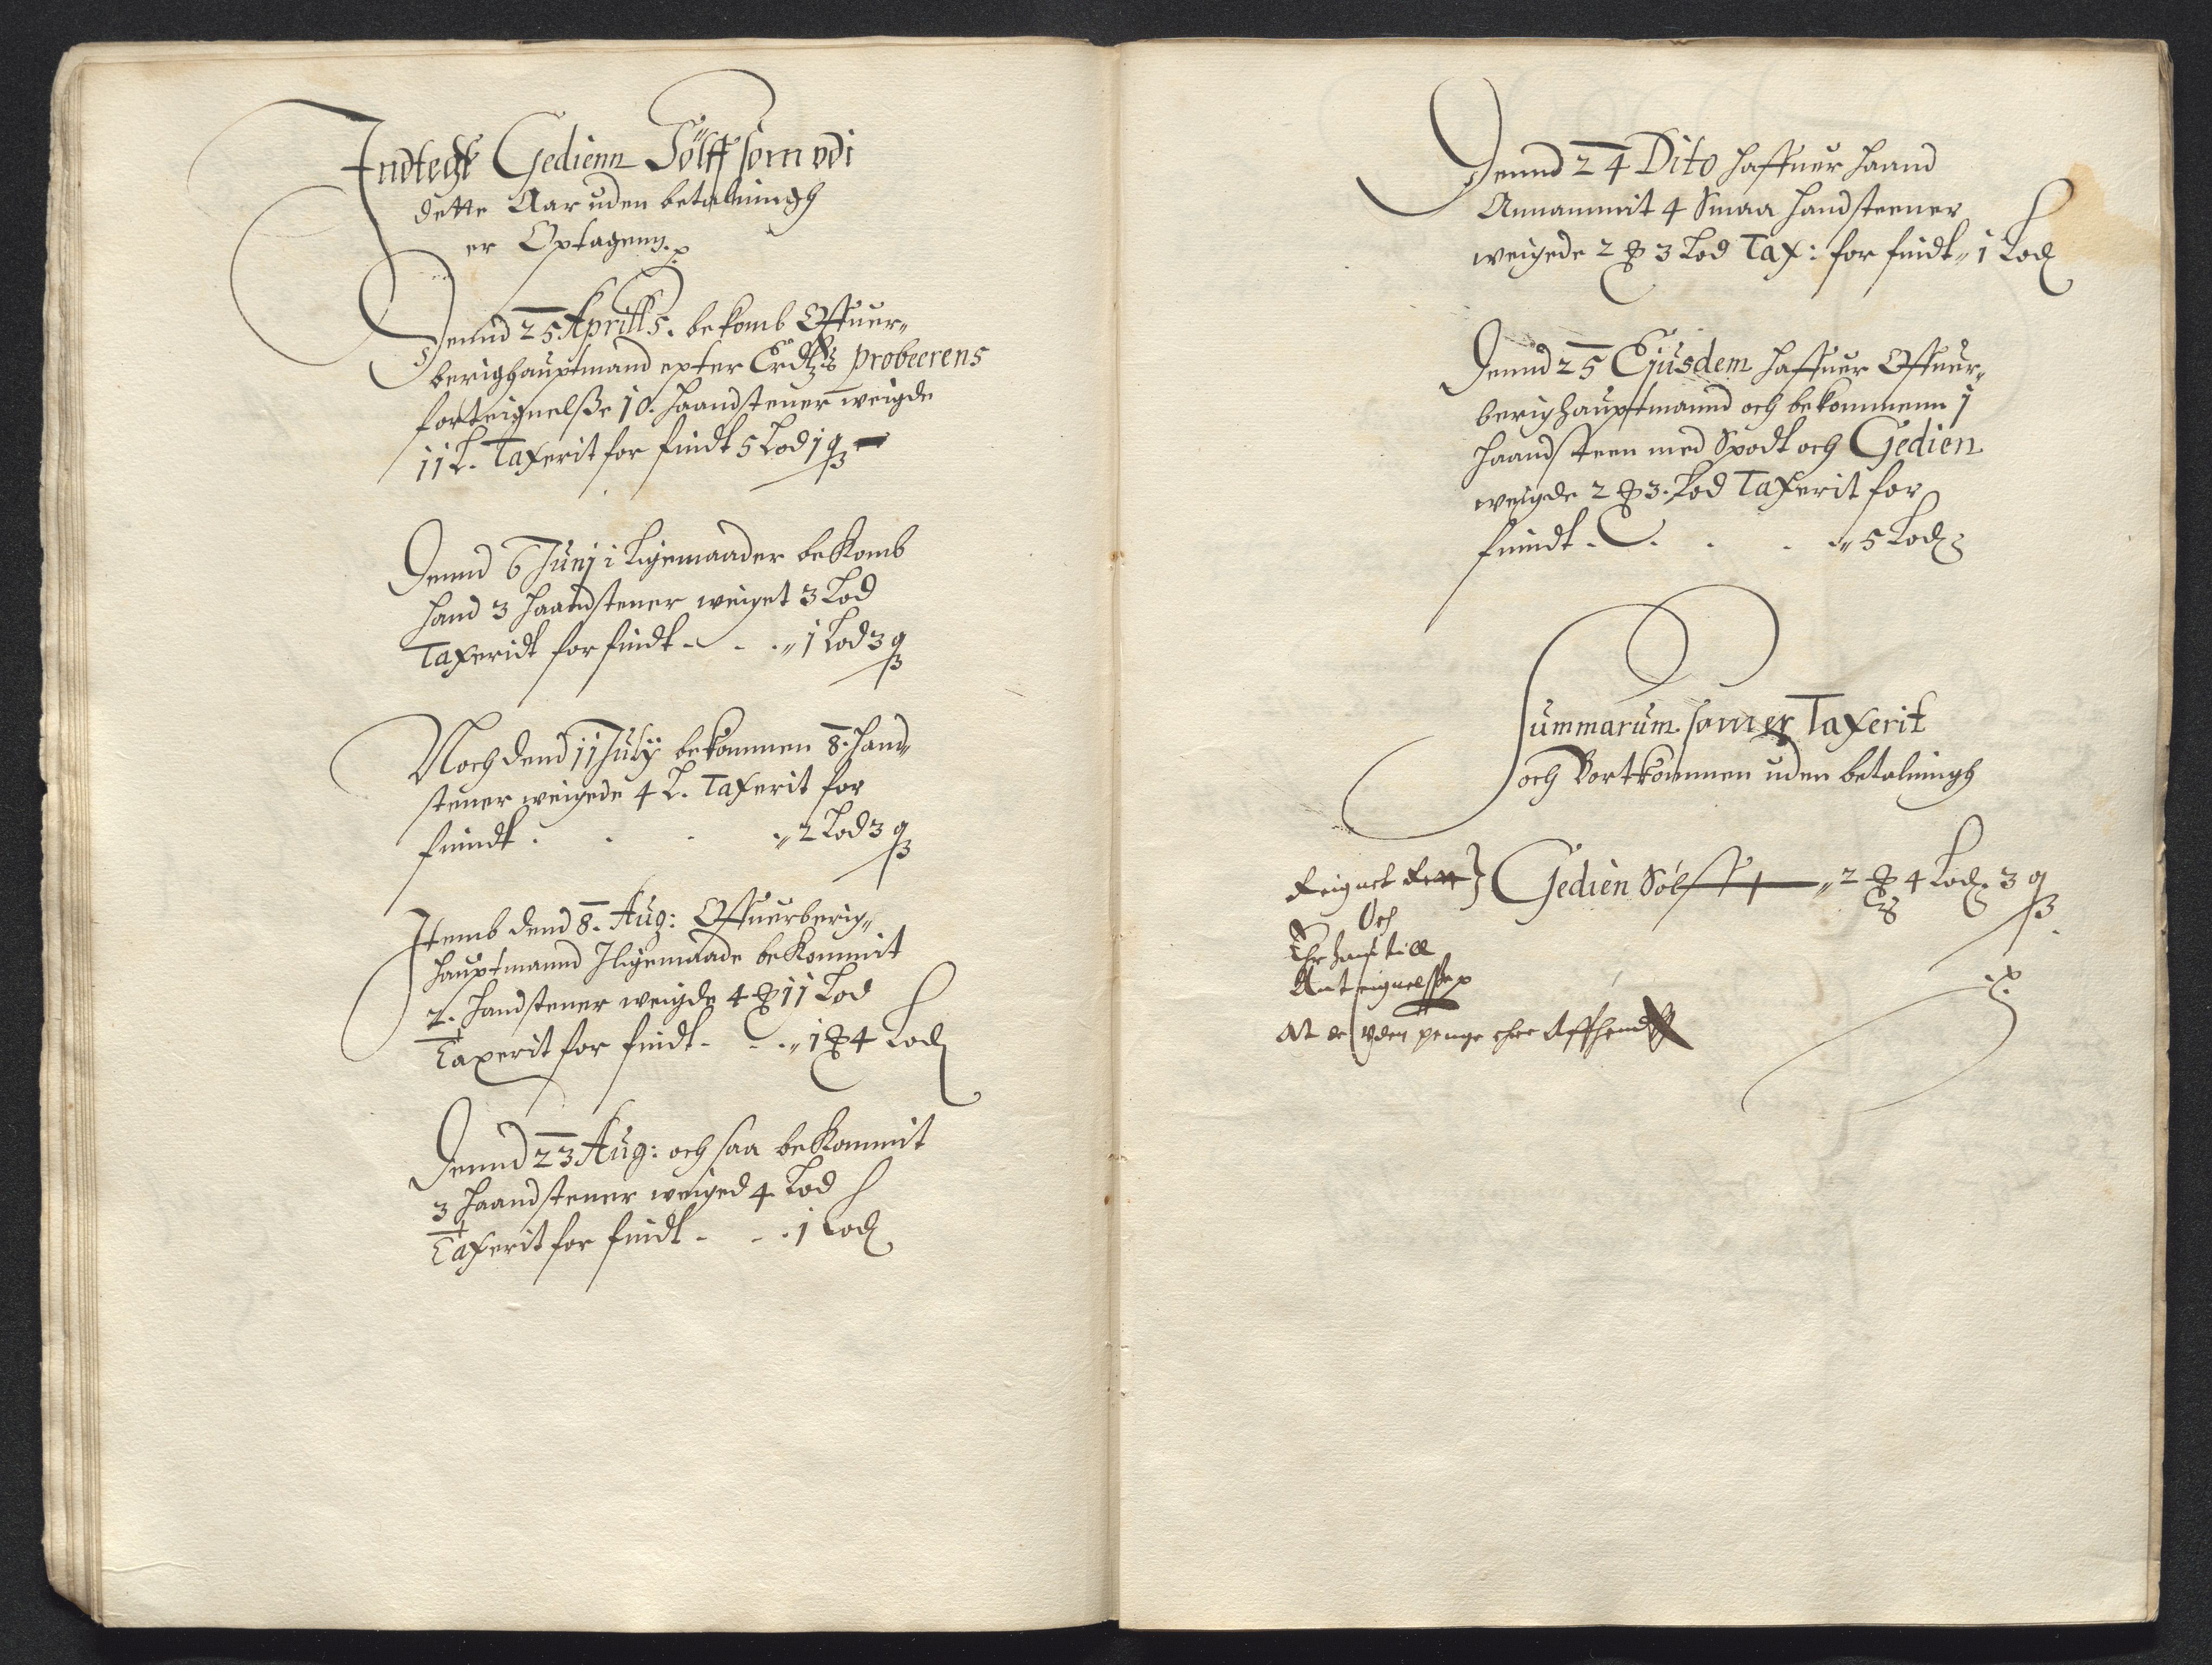 Indtegt Gedienn Sölff som udi
dette Aar uden betalningh
er Optagenn.
Dennd 25 Aprills. bekomb Offuer-
berighauptmand epter Erdtz probeerens
forteignelsse 10. Haandstener weigde
11 L. Taxerit for findt 5 Lod 1 q
Dennd 6 Junj i Ligemaader bekomb
hand 3 Haandstener weiget 3 Lod
Taxeridt for findt - - . " 1 Lod 3 q
Noch dend 11 July bekommen 8. Hand-
stener weigede 4 L. Taxerit for
fiindt . . . " 2 Lod 3 q
Itemb dend 8. Aug: Offuerberig-
hauptmannd Iligemaade bekommit
2. Handstener weigde 4 ℔ 11 Lod
Taxerit for findt - . " 1 ℔ 4 Lod
Dennd 23 Aug: och saa bekommit
3 Haandstener weiged 4 Lod
Taxerit for findt - - . 1 Lod
Dennd 24 Dito haffuer Haand
Annammit 4 Smaa Handsteener
weigede 2 ℔ 3 Lod Tax: for findt " 1 Lod
Dennd 25 Ejusdem haffuer Offuer-
berighauptmannd och bekommenn 1
Haandsteen med Spodt och Gedien
weigde 2 ℔ 3. Lod Taxerit for
fiindt - . . . " 5 Lod
Summarum som er Taxerit
och Bortkommen uden betalningh
Reignet Rett } Gedien Sölff " 2 ℔ 4 Lod. 3 q
Och
till
Anteignelsse
At de Uden penge ehre Affhend